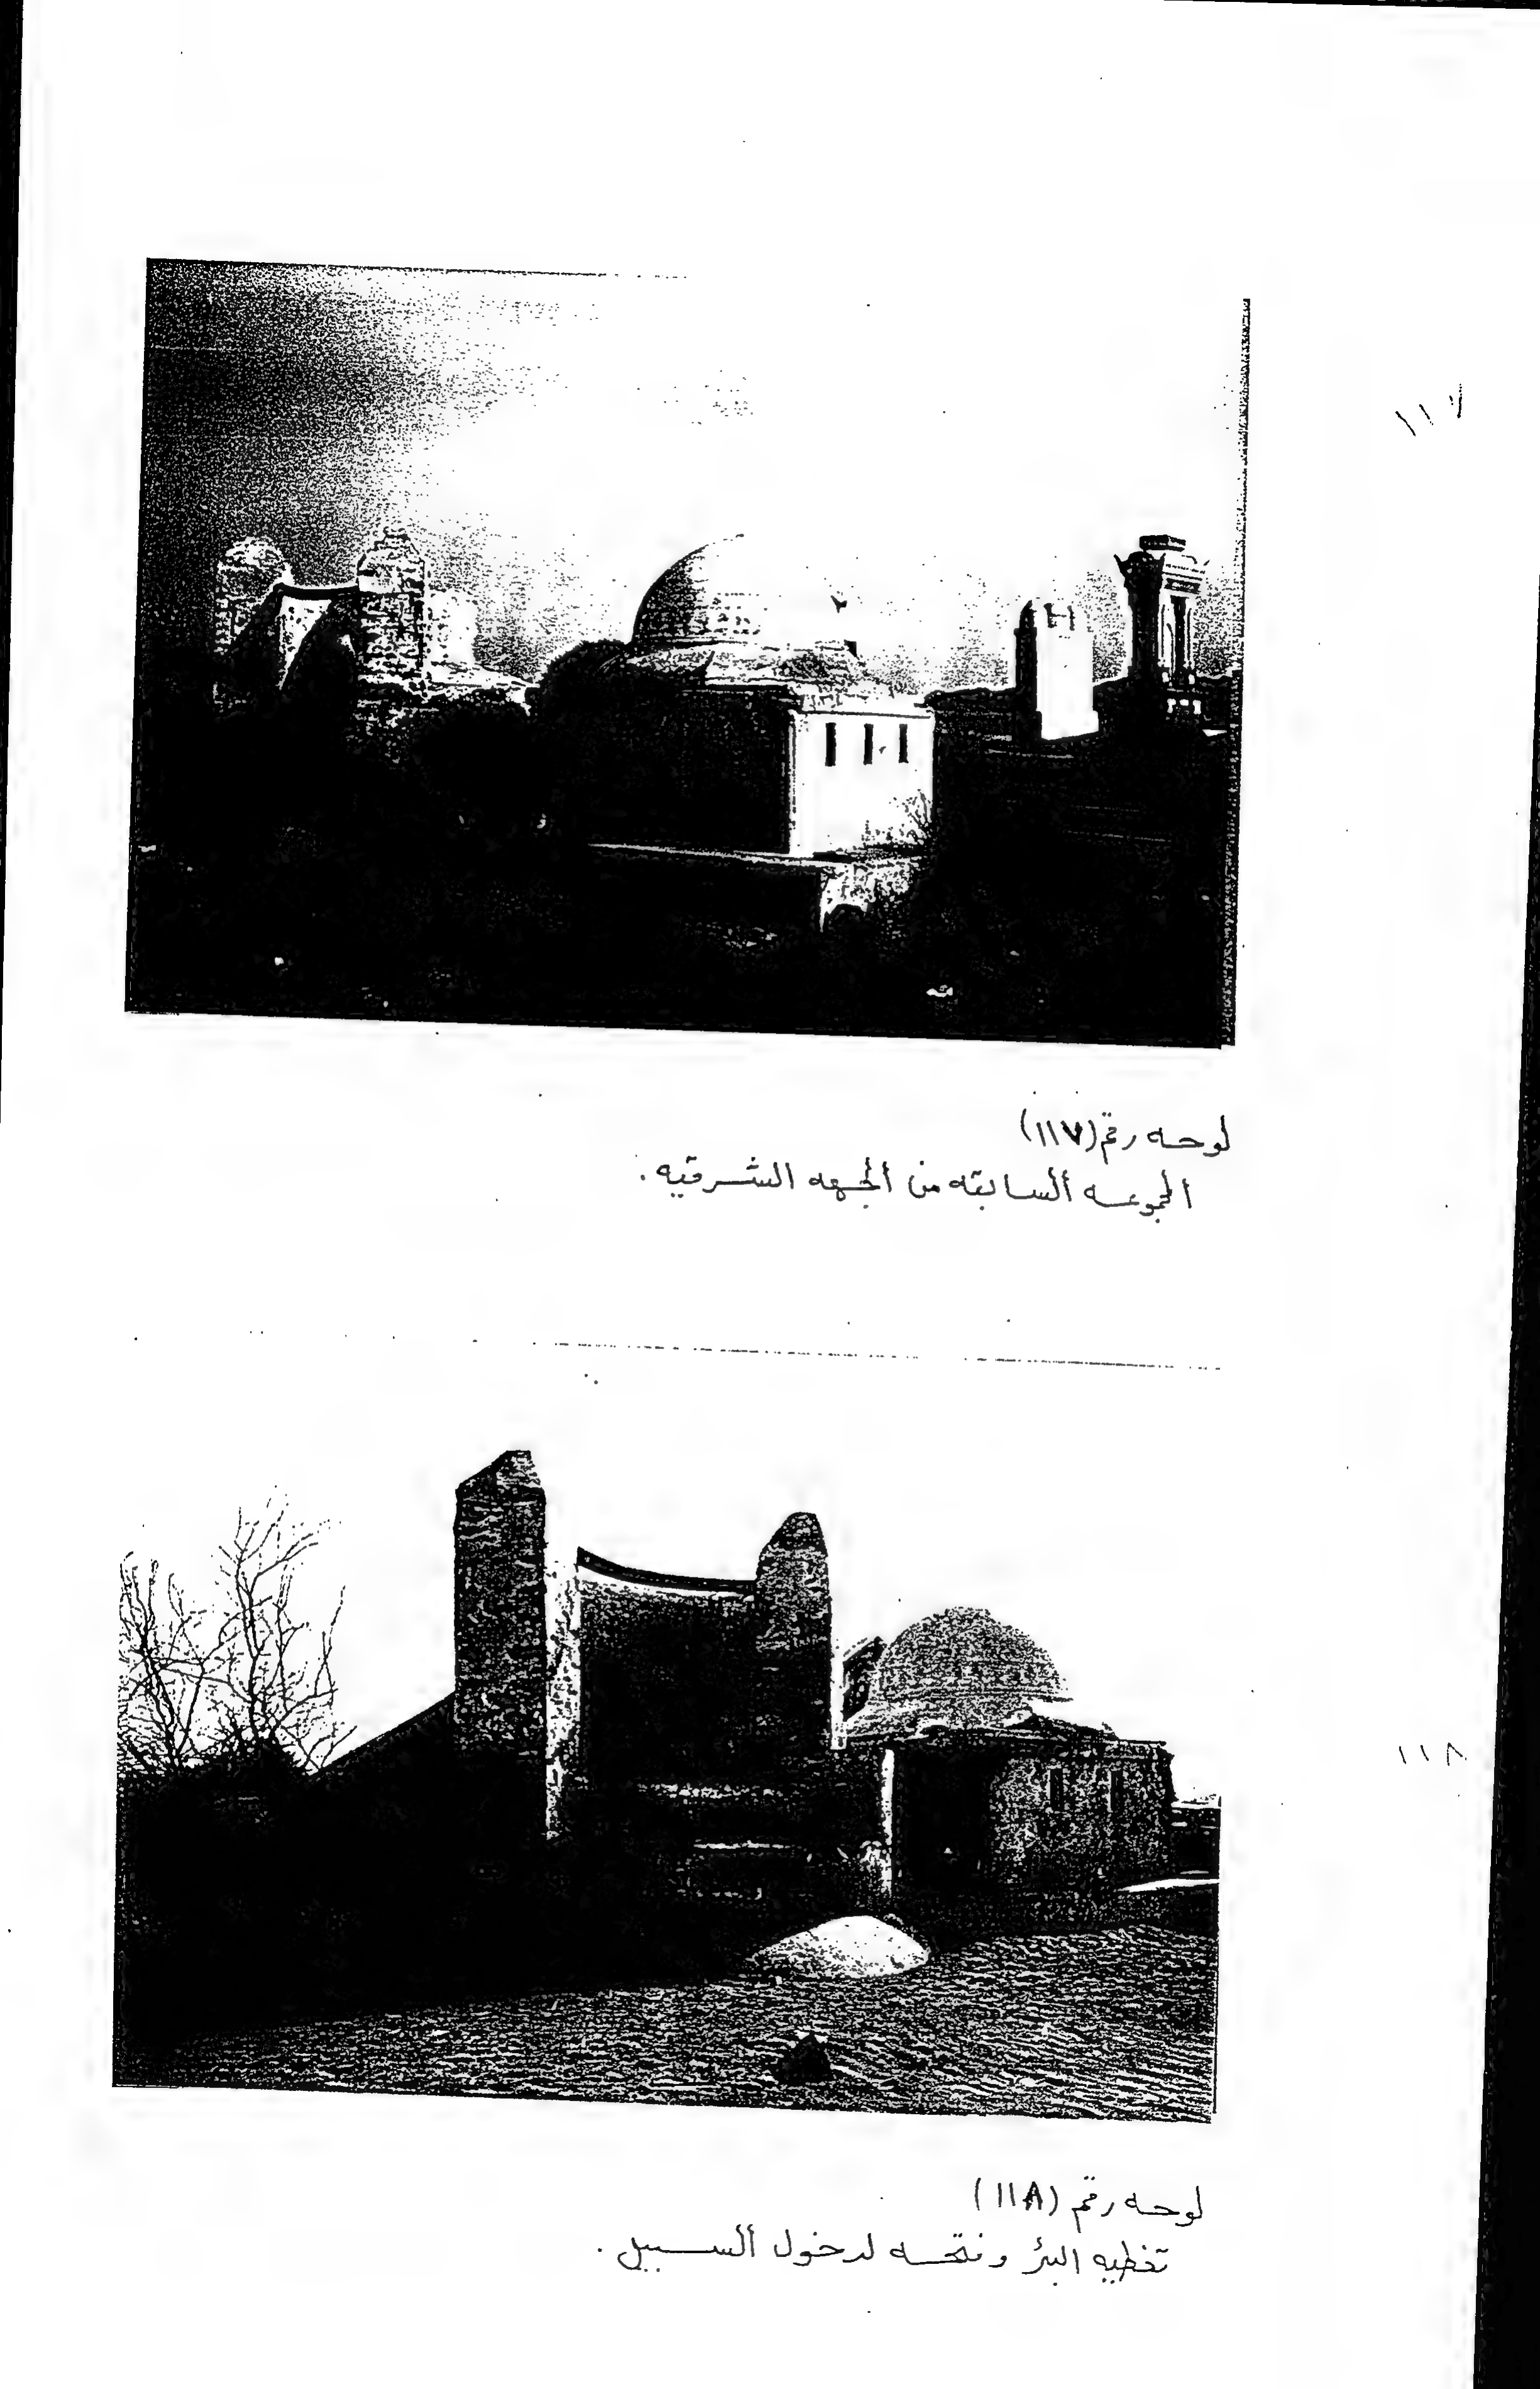 ١١٧
لوحه رقم (١١٧)
المجموعه السابقه من الجهه الشرقيه .
١١٨
لوحه رقم (١١٨)
تغطيه البئر وفتحه لدخول السبيل .